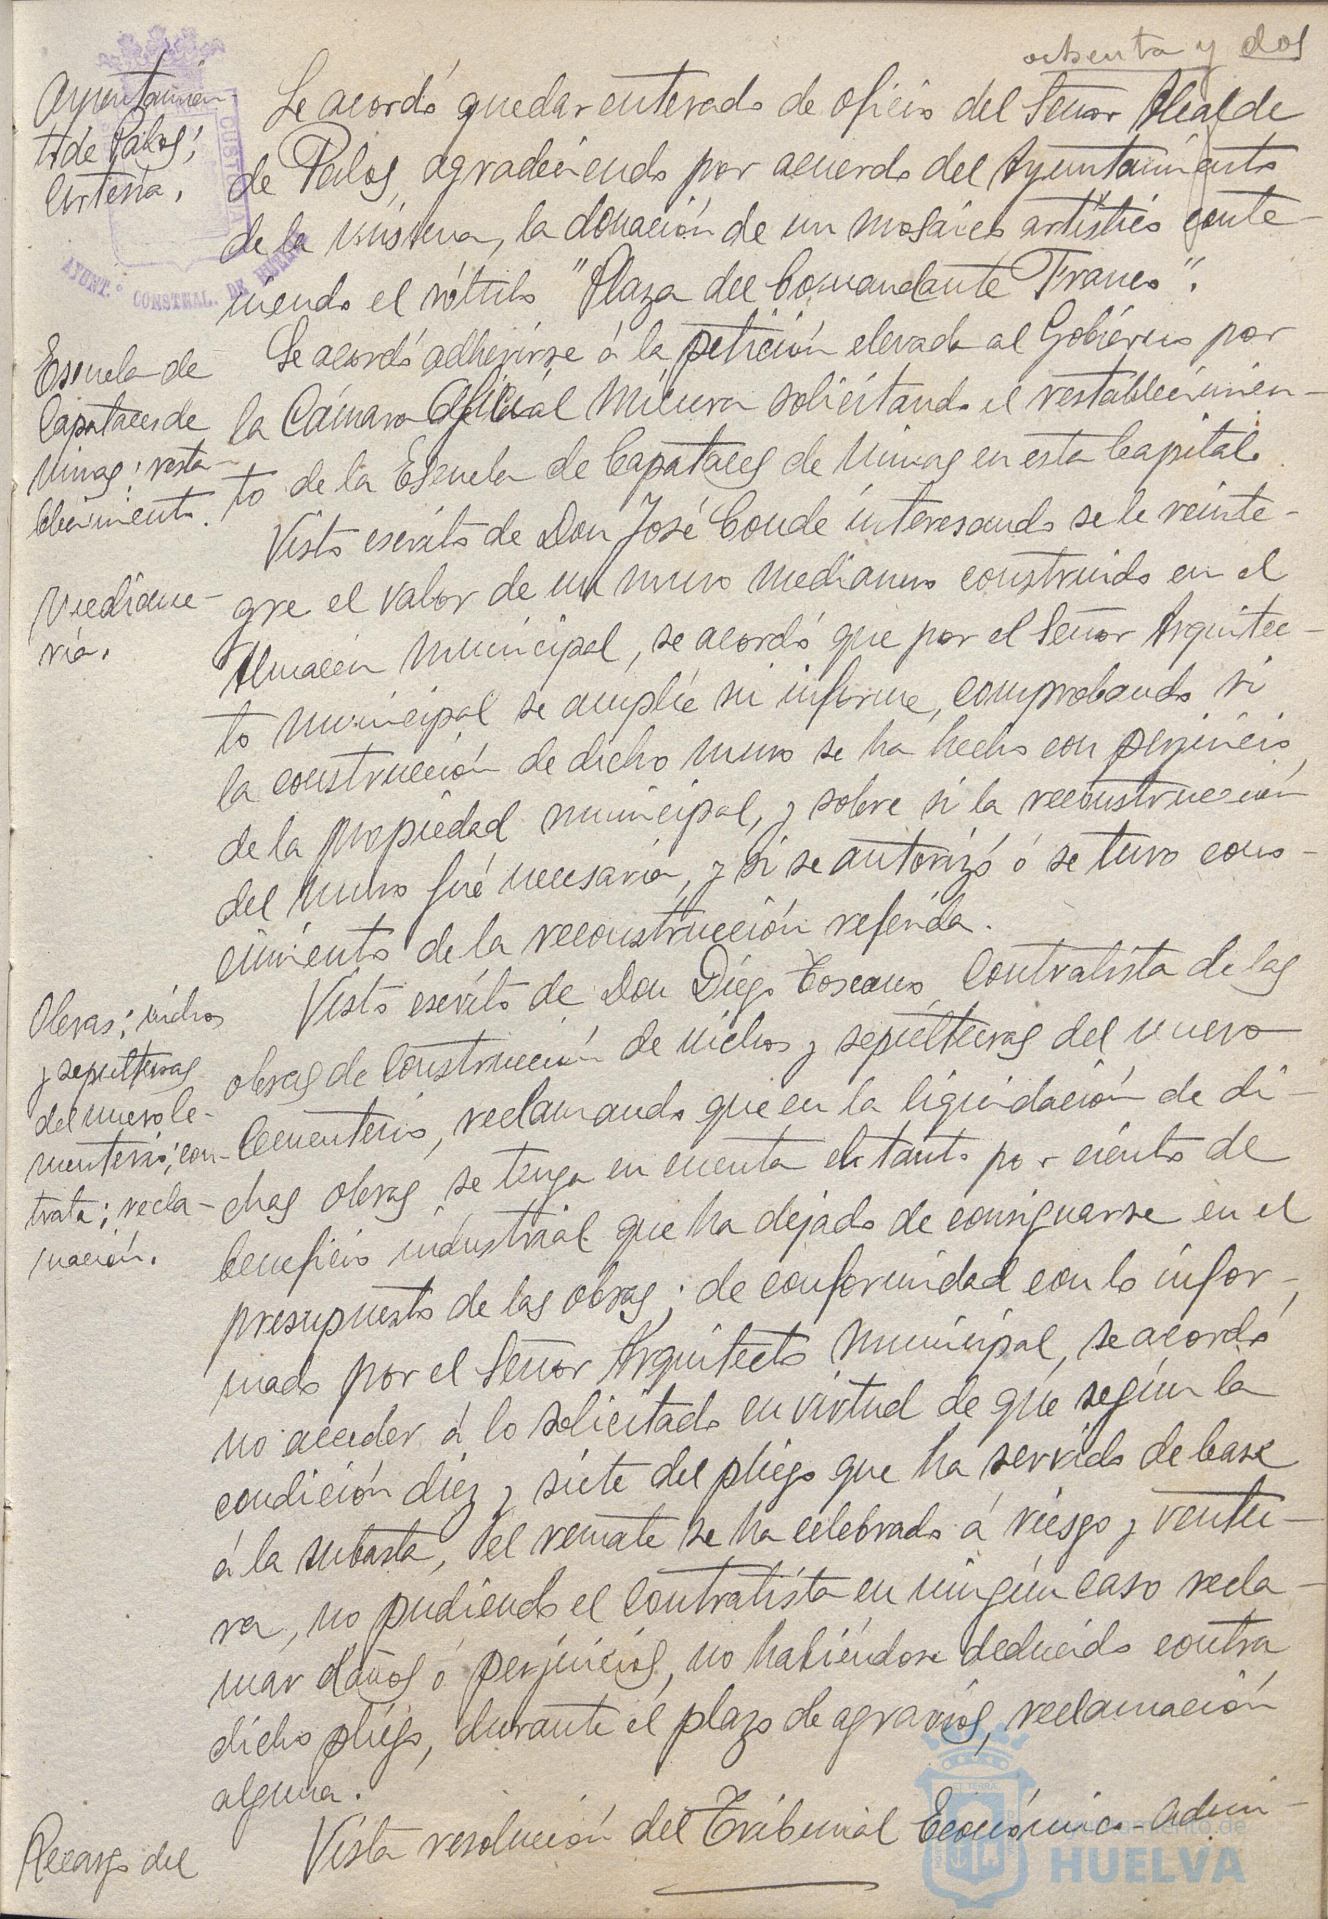 ochenta y dos
Ayuntamien-
to de Palos;
Cortesía.
Se acordó quedar enterado de oficio del Señor Alcalde
de Palos, agradeciendo por acuerdo del Ayuntamiento
de la misma, la donación de un mosaico artístico conte-
niendo el rótulo "Plaza del Comandante Franco".
Escuela de
Capataces de
Minas; resta-
blecimiento.
Se acordó adherirse á la petición elevada al Gobierno por
la Cámara Oficial Minera solicitando el restablecimien-
to de la Escuela de Capataces de Minas en esta Capital.
Mediane-
ría.
Visto escrito de Don José Conde interesando se le reinte-
gre el valor de un muro medianero construido en el
Almacén Municipal, se acordó que por el Señor Arquitec-
to municipal se amplíe su informe, comprobando si
la construcción de dicho muro se ha hecho con perjuicio
de la propiedad municipal, y sobre si la reconstrucción
del muro fué necesaria, y si se autorizó ó se tuvo cono-
cimiento de la reconstrucción referida.
Obras; nichos
y sepulturas
del nuevo Ce-
menterio; con-
trata; recla-
mación.
Visto escrito de Don Diego Toscano Contratista de las
obras de Construcción de nichos y sepulturas del nuevo
Cementerio, reclamando que en la liquidación de di-
chas obras se tenga en cuenta el tanto por ciento de
beneficio industrial que ha dejado de consignarse en el
presupuesto de las obras; de conformidad con lo infor-
mado por el Señor Arquitecto Municipal, se acordó
no acceder á lo solicitado en virtud de que según la
condición diez y siete del pliego que ha servido de base
á la subasta, el remate se ha celebrado á riesgo y ventu-
ra, no pudiendo el contratista en ningún caso recla-
mar daños ó perjuicios, no habiéndose deducido contra
dicho pliego, durante el plazo de agravios, reclamación
alguna.
Recargo del
Vista resolución del Tribunal Económico-admi-
AYUNT.º CONSTNAL. DE HUELVA
Ayuntamiento de
HUELVA